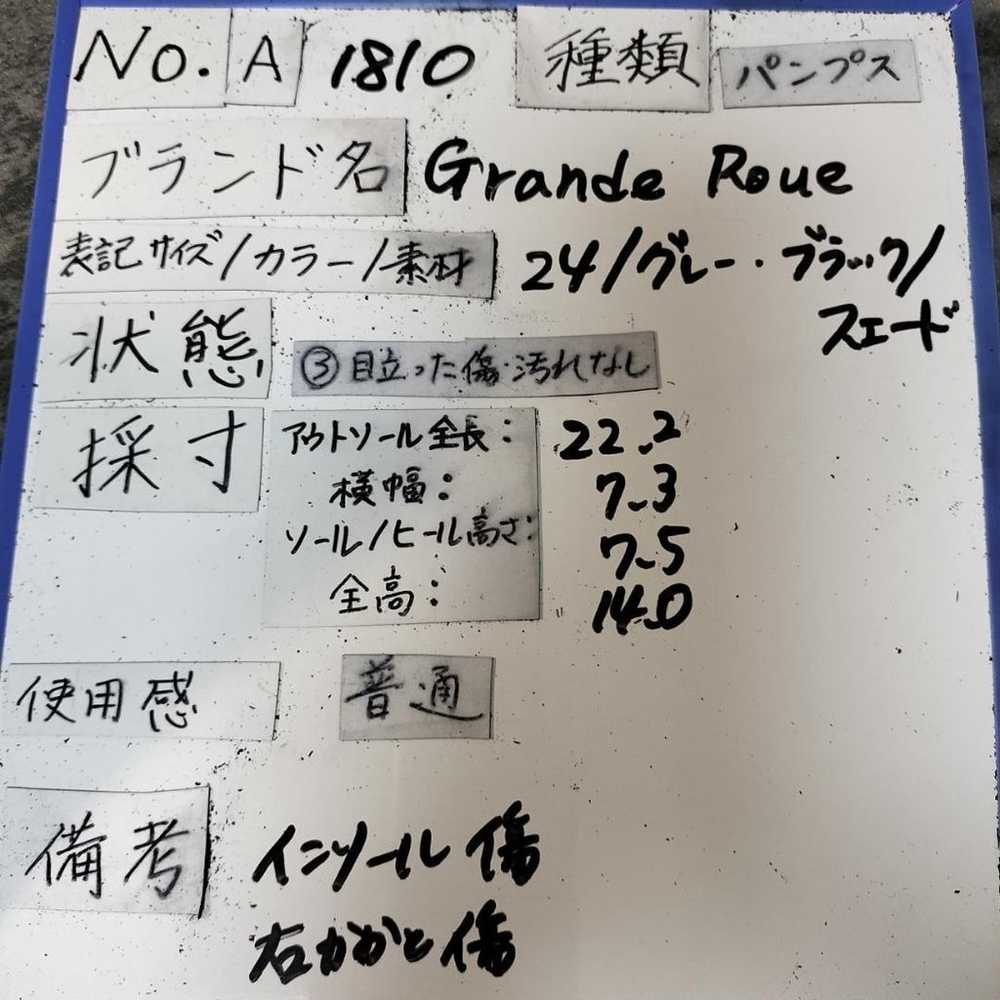 No. A 1810 種類 パンプス
ブランド名 Grande Roue
表記サイズ/カラー/素材 24/グレー・ブラック/
スエード
状態 ③目立った傷・汚れなし
採寸 アウトソール全長: 22.2
横幅: 7.3
ソール/ヒール高さ: 7.5
全高: 14.0
使用感 普通
備考 インソール傷
右かかと傷